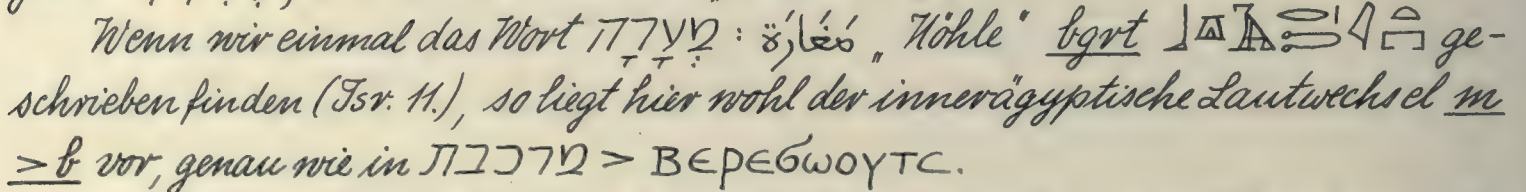 Wenn wir einmal das Wort מְעָרָת : مَغَارَة „Höhle“ bgrt ge-
schrieben finden (Isr. 11.), so liegt hier wohl der innerägyptische Lautwechsel m
> b vor, genau wie in מרכבת > ⲂⲈⲢⲈϬⲰⲞⲨⲦⲤ.